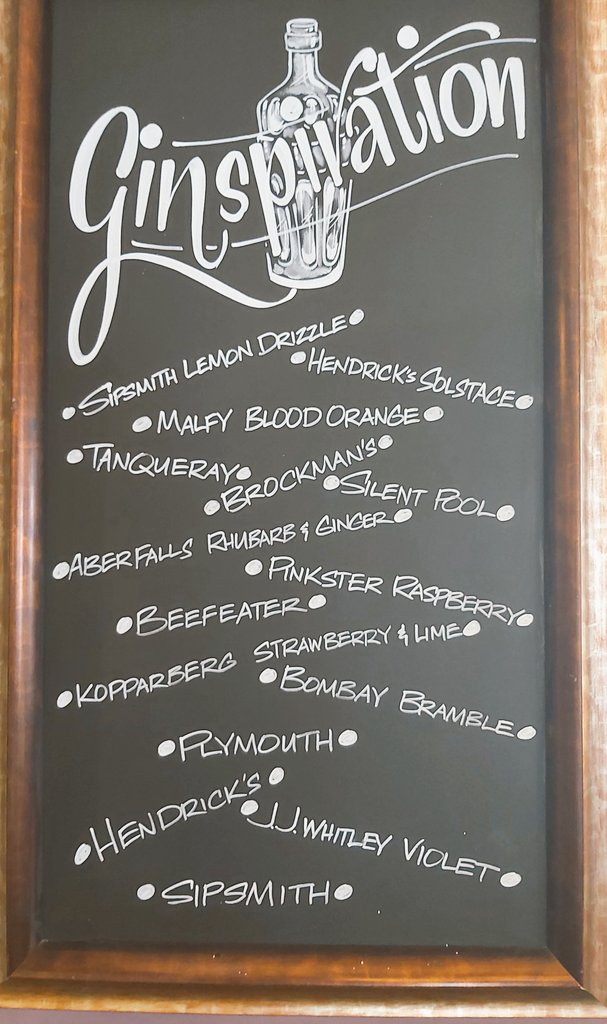 Ginspiration
SIPSMITH LEMON DRIZZLE
HENDRICK'S SOLSTACE
MALFY BLOOD ORANGE
TANQUERAY
BROCKMAN'S
SILENT POOL
ABER FALLS RHUBARB & GINGER
PINKSTER RASPBERRY
BEEFEATER
KOPPARBERG STRAWBERRY & LIME
BOMBAY BRAMBLE
PLYMOUTH
HENDRICK'S
J.J. WHITLEY VIOLET
SIPSMITH